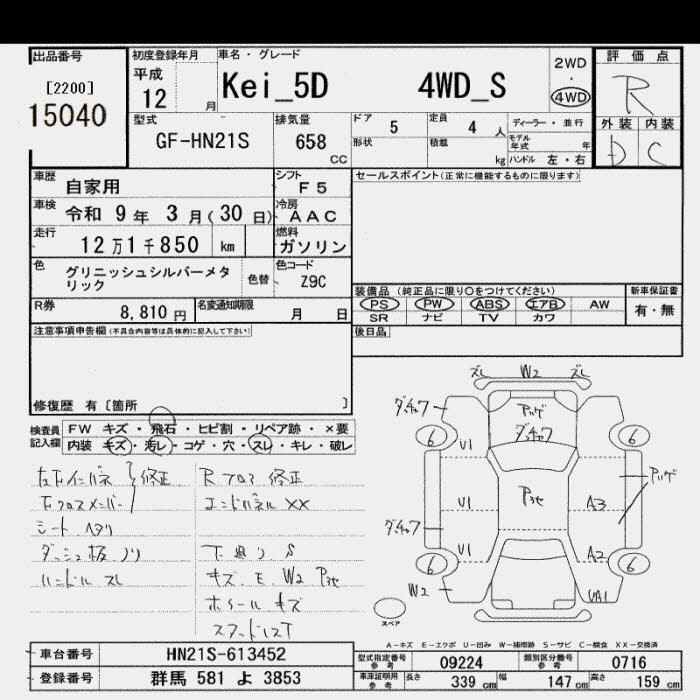 出品番号
[2200]
15040
初度登録年月
平成
12 月
車名・グレード
Kei_5D 4WD_S
2WD
・
4WD
評価点
R
外装 内装
D C
型式
GF-HN21S
排気量
658
CC
ドア 5
定員 4 人
形状
積載 kg
ディーラー・並行
モデル年式 年
ハンドル 左・右
車歴 自家用
シフト F5
車検 令和 9年 3月(30日)
冷房 AAC
走行 12万1千850 km
燃料 ガソリン
色 グリニッシュシルバーメタリック
色替
色コード Z9C
R券 8,810円
名変通知期限 月 日
セールスポイント(正常に機能するものに限ります)
装備品(純正品に限り○をつけてください)
PS PW ABS エアB AW
SR ナビ TV カワ
新車保証書
有・無
後日品
注意事項申告欄(不具合内容等は具体的に記入して下さい)
修復歴 有〔箇所 〕
検査員記入欄
FW キズ・飛石・ヒビ割・リペア跡・×要
内装 キズ・汚レ・コゲ・穴・スレ・キレ・破レ
修正
シート ヘタリ
ダッシュ板 ノリ
ハンドル スレ
Rフロア 修正
エンドパネル XX
下廻り S
キズ、E、W2
ホイール キズ
ズレ W2 ズレ
6 6
U1
U1
A3
U1
A2
6 6
W2
UA1
スペア
A-キズ E-エクボ U-凹み W-補修跡 S-サビ C-腐食 XX-交換済
車台番号 HN21S-613452
登録番号 群馬 581 よ 3853
型式指定番号 参考 09224
類別区分番号 参考 0716
車庫証明用 参考 長さ 339 cm 幅 147 cm 高さ 159 cm